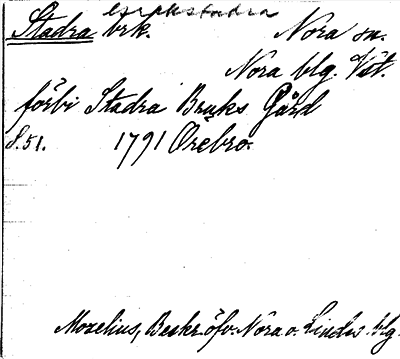 Stadra brk. Nora sn.
Nora blg. Vst.
förbi Stadra Bruks Gård
S. 51. 1791 Örebro.
Mozelius, Beskr. öfv. Nora o. Lindes blg.